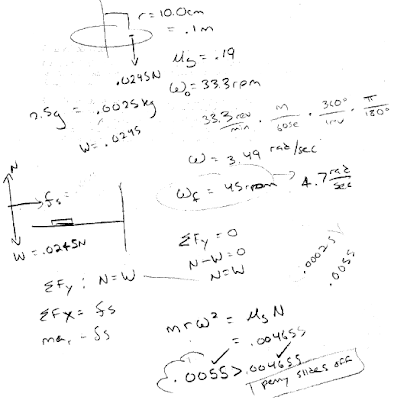 r = 10.0cm
= .1m
.0245N
μs = .19
ω₀ = 33.3 rpm
2.5g = .0025kg
W = .0245
33.3 rev/min · m/60sec · 360°/1rev · π/180°
ω = 3.49 rad/sec
ωf = 45 rpm ? 4.7 rad/sec
N
fs
W = .0245N
ΣFy = 0
N - W = 0
N = W
ΣFy : N = W
ΣFx = fs
.0055
mrω² = μs N
= .004655
.0055 > .004655
penny slides off